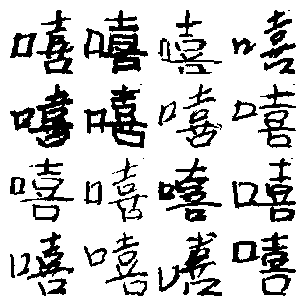 嘻嘻嘻嘻
嘻嘻嘻嘻
嘻嘻嘻嘻
嘻嘻嘻嘻